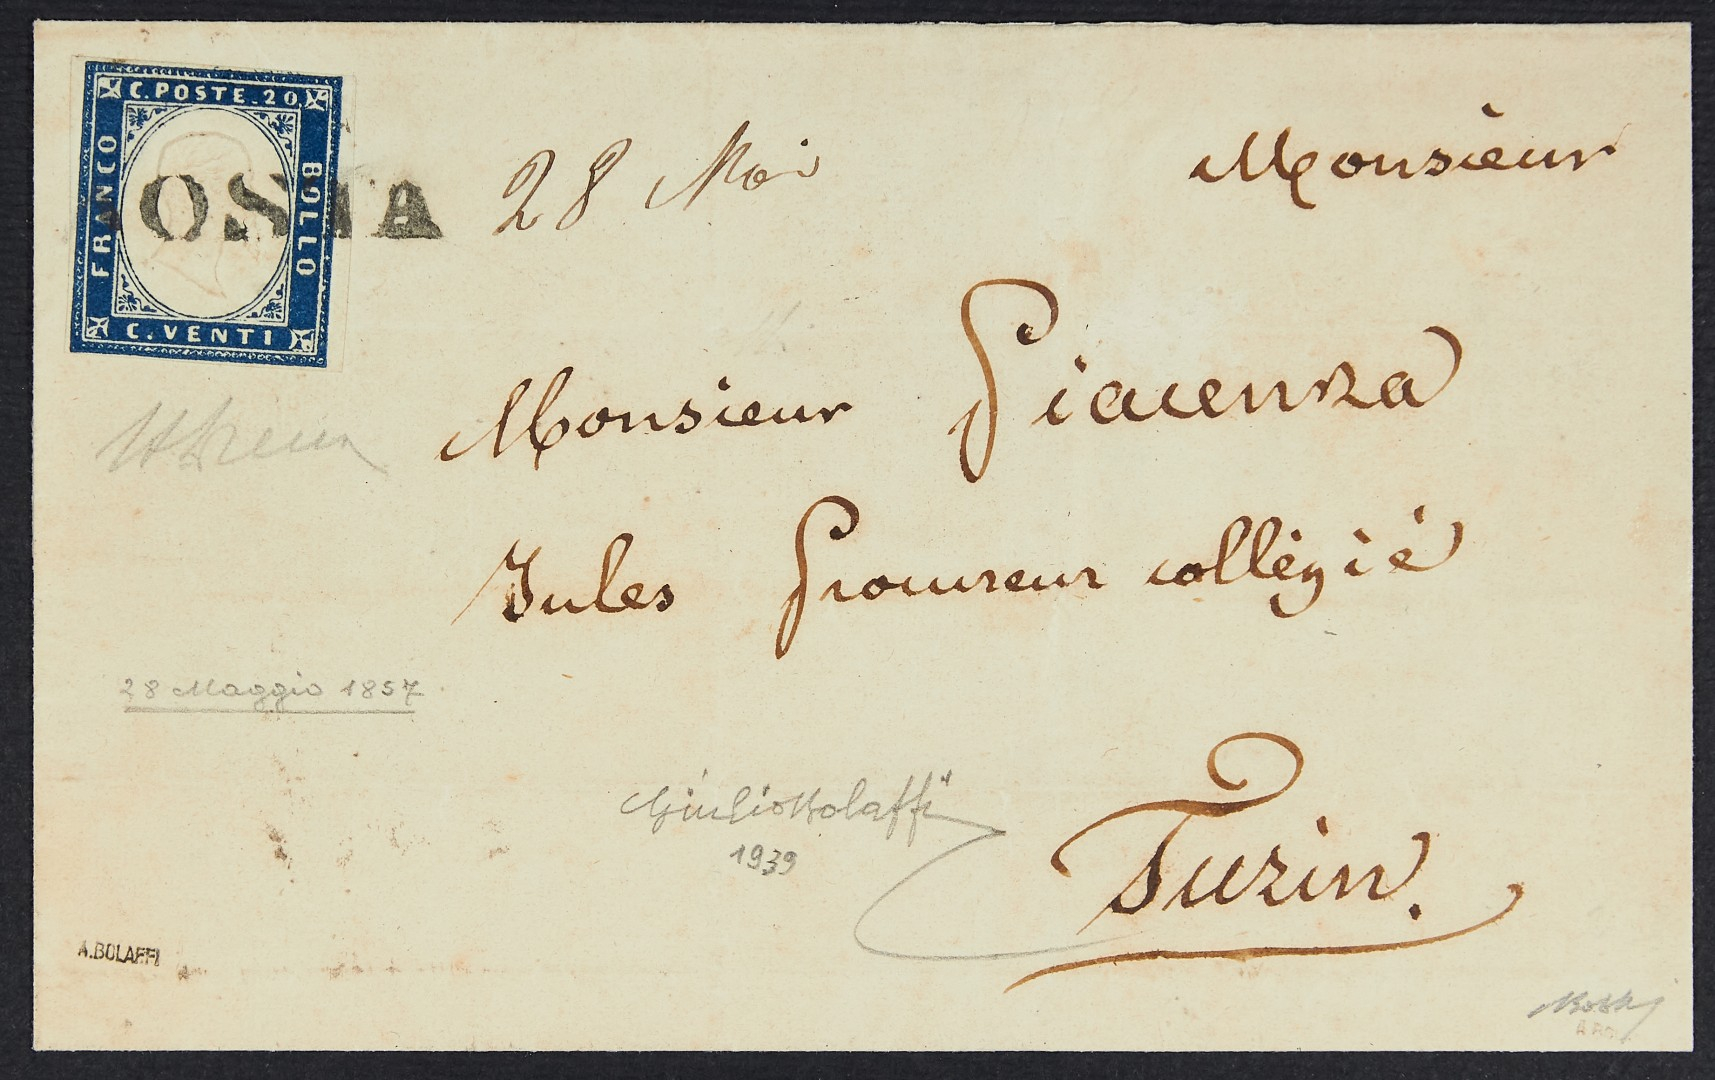 C. POSTE. 20
FRANCO
BOLLO
C. VENTI
28 Mai
Monsieur
Monsieur Piacenza
Jules Procureur collégié
28 Maggio 1857
Giulio Bolaffi
1939
Turin.
A. BOLAFFI